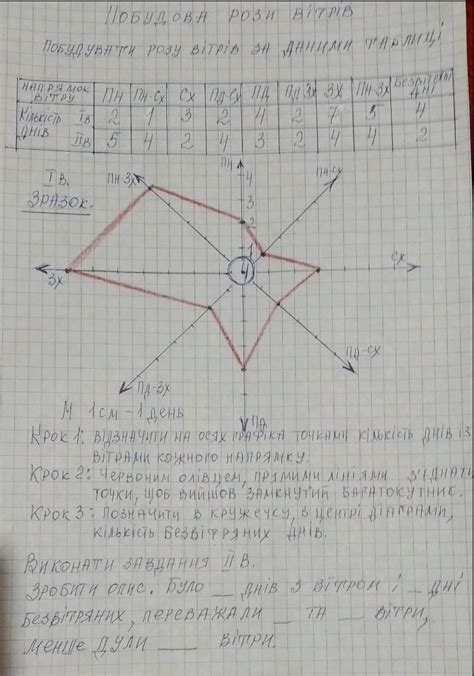 ПОБУДОВА РОЗИ ВІТРІВ
ПОБУДУВАТИ РОЗУ ВІТРІВ ЗА ДАНИМИ ТАБЛИЦІ
НАПРЯМОК ВІТРУ ПН ПН-СХ СХ ПД-СХ ПД ПД-ЗХ ЗХ ПН-ЗХ БЕЗВІТРЯНІ ДНІ
КІЛЬКІСТЬ ДНІВ ІВ 2 1 3 2 4 2 7 5 4
ІІВ 5 4 2 4 3 2 4 4 2
І В.
ЗРАЗОК.
ПН
ПН-ЗХ
ПН-СХ
4
3
2
1
4
ЗХ
СХ
ПД-ЗХ
ПД-СХ
ПД
М 1СМ - 1 ДЕНЬ
КРОК 1: ВІДЗНАЧИТИ НА ОСЯХ ГРАФІКА ТОЧКАМИ КІЛЬКІСТЬ ДНІВ ІЗ
ВІТРАМИ КОЖНОГО НАПРЯМКУ.
КРОК 2: ЧЕРВОНИМ ОЛІВЦЕМ, ПРЯМИМИ ЛІНІЯМИ З'ЄДНАТИ
ТОЧКИ, ЩОБ ВИЙШОВ ЗАМКНУТИЙ БАГАТОКУТНИК.
КРОК 3: ПОЗНАЧИТИ В КРУЖЕЧКУ, В ЦЕНТРІ ДІАГРАМИ,
КІЛЬКІСТЬ БЕЗВІТРЯНИХ ДНІВ.
ВИКОНАТИ ЗАВДАННЯ ІІ В.
ЗРОБИТИ ОПИС. БУЛО __ ДНІВ З ВІТРОМ І __ ДНІ
БЕЗВІТРЯНИХ, ПЕРЕВАЖАЛИ __ ТА __ ВІТРИ,
МЕНШЕ ДУЛИ ___ ВІТРИ.